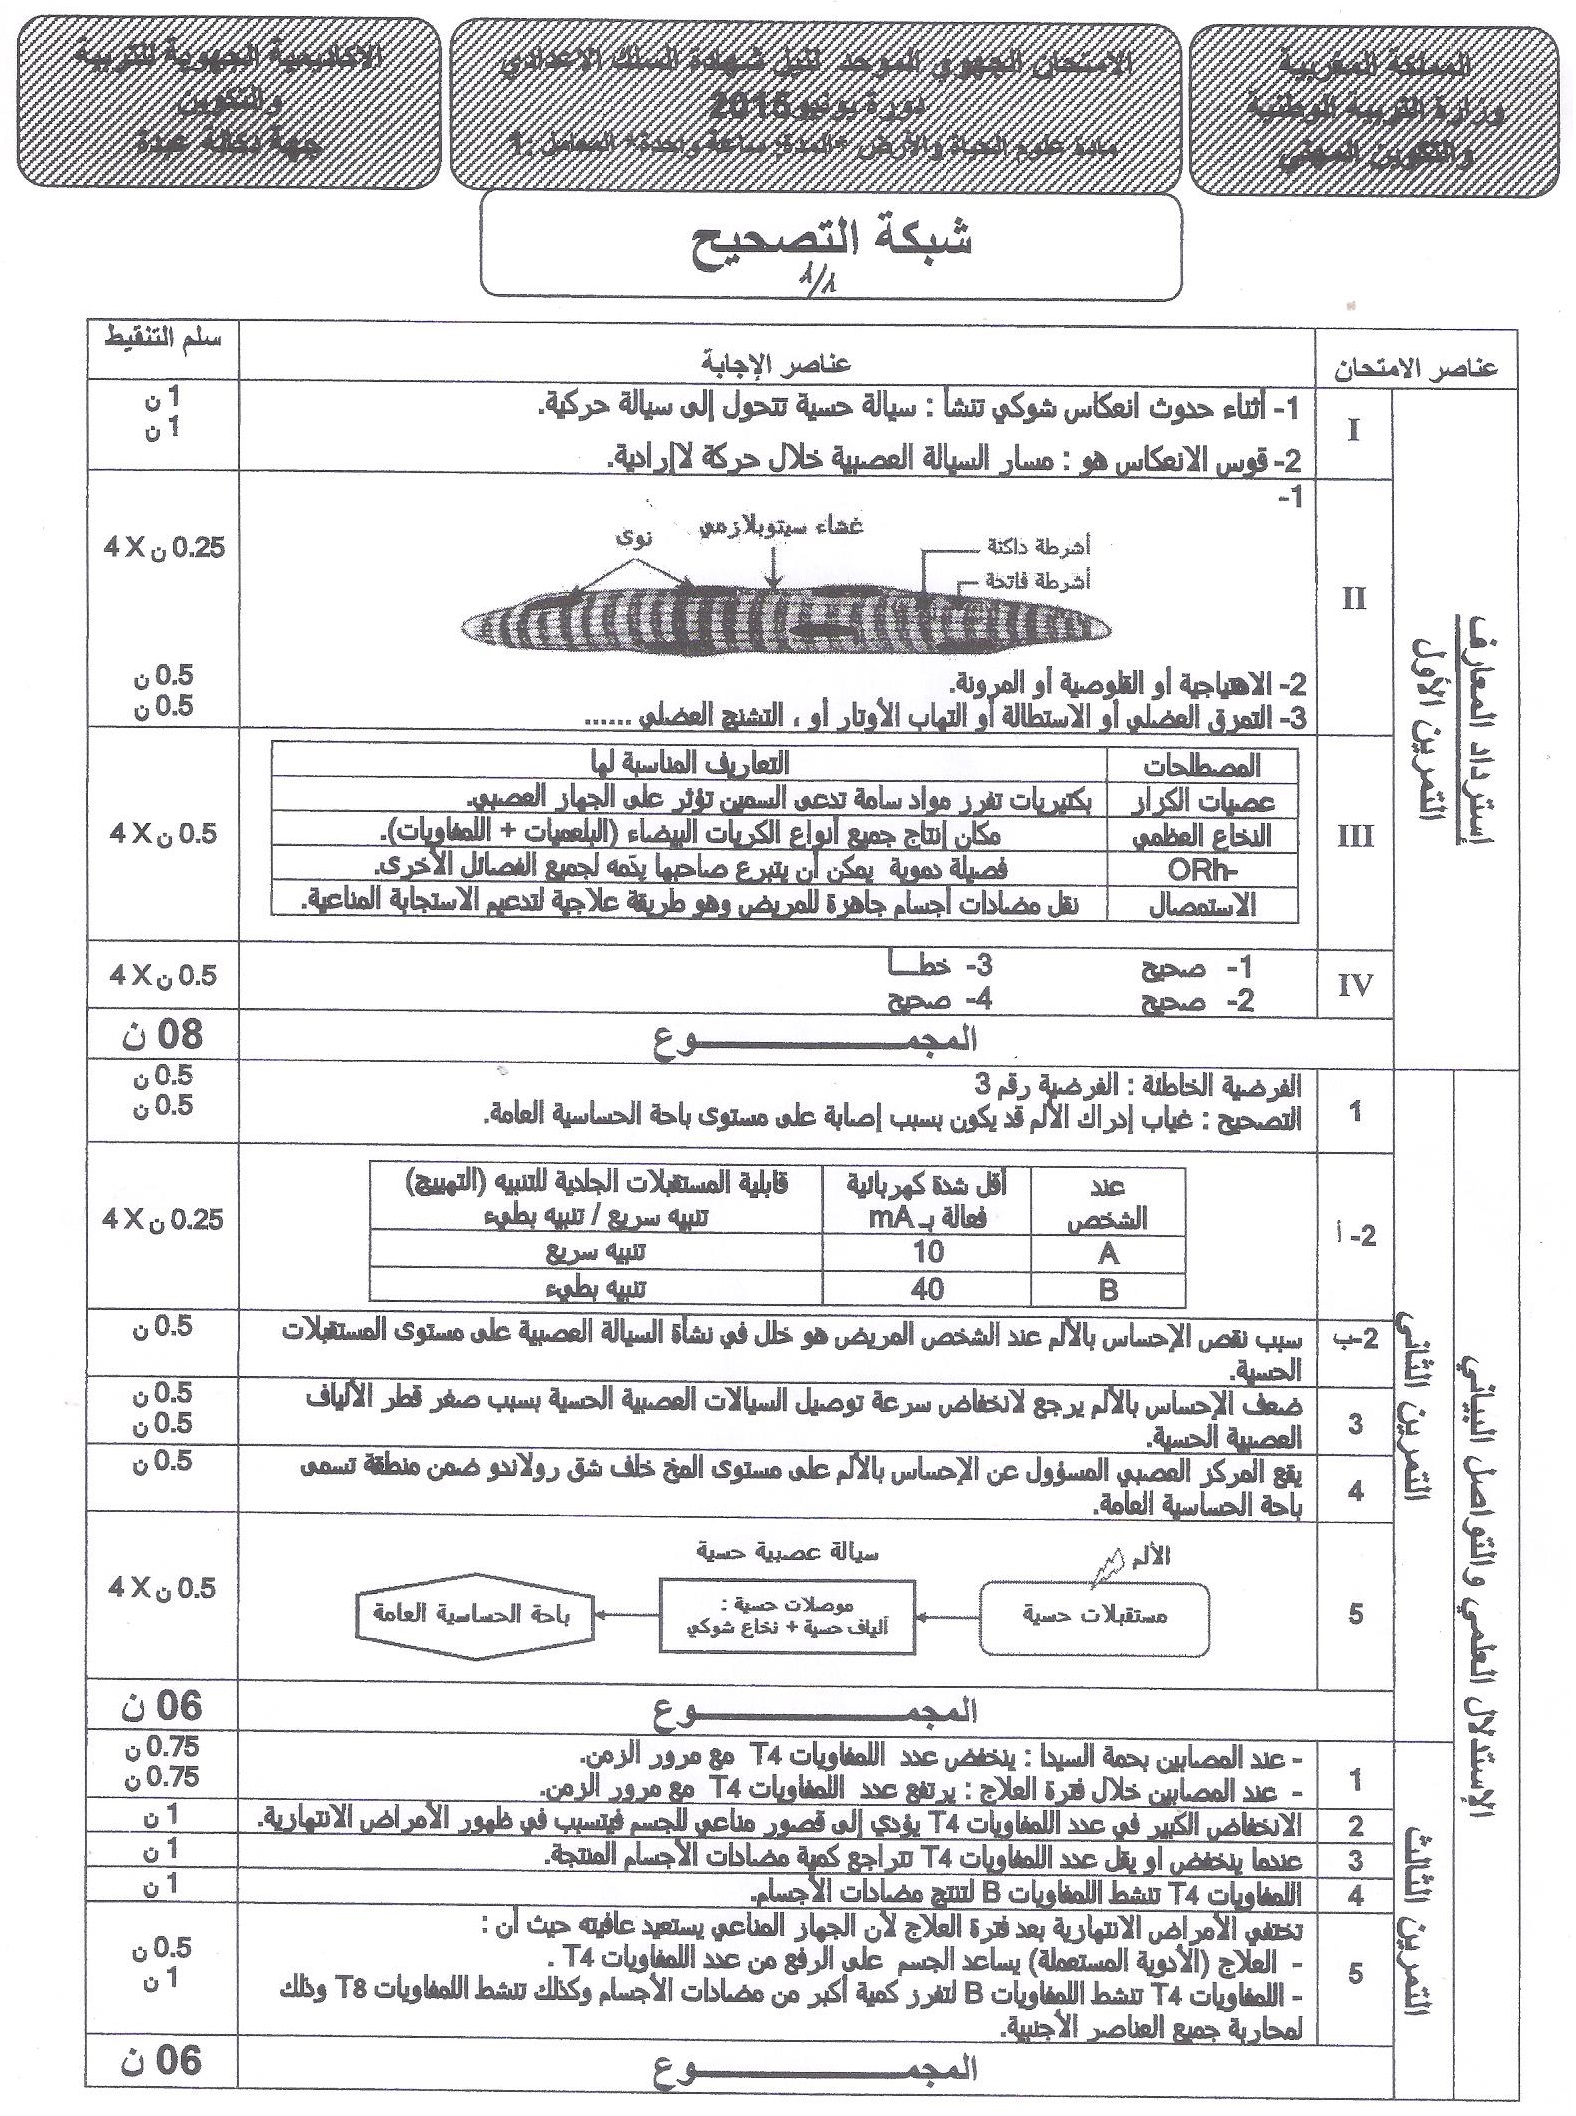 المملكة المغربية
وزارة التربية الوطنية
والتكوين المهني
الامتحان الجهوي الموحد لنيل شهادة السلك الاعدادي
دورة يونيو2015
مادة علوم الحياة والأرض *المدة: ساعة واحدة* المعامل :1
الاكاديمية الجهوية للتربية
والتكوين
جهة دكالة عبدة
شبكة التصحيح
1/1
عناصر الامتحان
عناصر الإجابة
سلم التنقيط
إسترداد المعارف
التمرين الأول
I
1- أثناء حدوث انعكاس شوكي تنشأ : سيالة حسية تتحول إلى سيالة حركية.
1 ن
2- قوس الانعكاس هو : مسار السيالة العصبية خلال حركة لاإرادية.
1 ن
II
1-
غشاء سيتوبلازمي
نوى
أشرطة داكنة
أشرطة فاتحة
0.25 ن X 4
2- الاهتياجية أو القلوصية أو المرونة.
0.5 ن
3- التمزق العضلي أو الاستطالة أو التهاب الأوتار أو ، التشنج العضلي ......
0.5 ن
III
المصطلحات التعاريف المناسبة لها
عصيات الكزاز بكتيريات تفرز مواد سامة تدعى السمين تؤثر على الجهاز العصبي.
النخاع العظمي مكان إنتاج جميع أنواع الكريات البيضاء (البلعميات + اللمفاويات).
ORh- فصيلة دموية يمكن أن يتبرع صاحبها بدمه لجميع الفصائل الأخرى.
الاستمصال نقل مضادات أجسام جاهزة للمريض وهو طريقة علاجية لتدعيم الاستجابة المناعية.
0.5 ن X 4
IV
1- صحيح 3- خطــأ
2- صحيح 4- صحيح
0.5 ن X 4
المجمــــــــــوع
08 ن
الإستدلال العلمي والتواصل البياني
التمرين الثاني
1
الفرضية الخاطئة : الفرضية رقم 3
0.5 ن
التصحيح : غياب إدراك الألم قد يكون بسبب إصابة على مستوى باحة الحساسية العامة.
0.5 ن
2- أ
عند الشخص
أقل شدة كهربائية فعالة بـ mA
قابلية المستقبلات الجلدية للتنبيه (التهييج) تنبيه سريع / تنبيه بطيء
A 10 تنبيه سريع
B 40 تنبيه بطيء
0.25 ن X 4
2-ب
سبب نقص الإحساس بالألم عند الشخص المريض هو خلل في نشأة السيالة العصبية على مستوى المستقبلات
الحسية.
0.5 ن
3
ضعف الإحساس بالألم يرجع لانخفاض سرعة توصيل السيالات العصبية الحسية بسبب صغر قطر الألياف
العصبية الحسية.
0.5 ن
0.5 ن
4
يقع المركز العصبي المسؤول عن الإحساس بالألم على مستوى المخ خلف شق رولاندو ضمن منطقة تسمى
باحة الحساسية العامة.
0.5 ن
5
الألم
سيالة عصبية حسية
مستقبلات حسية
موصلات حسية :
ألياف حسية + نخاع شوكي
باحة الحساسية العامة
0.5 ن X 4
المجمــــــــــوع
06 ن
التمرين الثالث
1
- عند المصابين بحمة السيدا : ينخفض عدد اللمفاويات T4 مع مرور الزمن.
0.75 ن
- عند المصابين خلال فترة العلاج : يرتفع عدد اللمفاويات T4 مع مرور الزمن.
0.75 ن
2
الانخفاض الكبير في عدد اللمفاويات T4 يؤدي إلى قصور مناعي للجسم فيتسبب في ظهور الأمراض الانتهازية.
1 ن
3
عندما ينخفض او يقل عدد اللمفاويات T4 تتراجع كمية مضادات الأجسام المنتجة.
1 ن
4
اللمفاويات T4 تنشط اللمفاويات B لتنتج مضادات الأجسام.
1 ن
5
تختفي الأمراض الانتهازية بعد فترة العلاج لأن الجهاز المناعي يستعيد عافيته حيث أن :
- العلاج (الأدوية المستعملة) يساعد الجسم على الرفع من عدد اللمفاويات T4 .
0.5 ن
- اللمفاويات T4 تنشط اللمفاويات B لتفرز كمية أكبر من مضادات الأجسام وكذلك تنشط اللمفاويات T8 وذلك
لمحاربة جميع العناصر الأجنبية.
1 ن
المجمــــــــــوع
06 ن